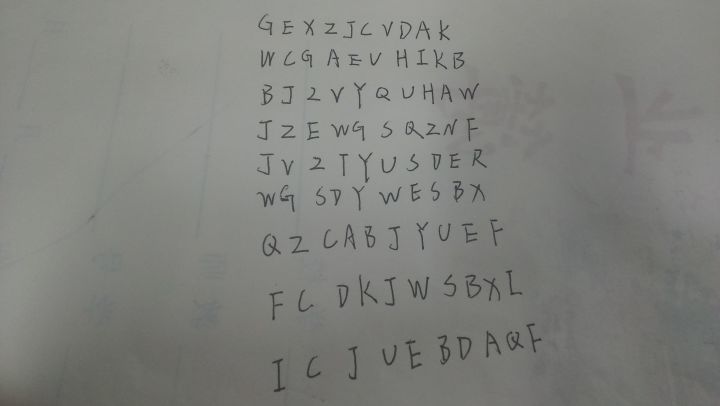 G E X Z J C V D A K
W C G A E V H I K B
B J Z V Y Q U H A W
J Z E W G S Q Z N F
J V Z T Y U S D E R
W G S D Y W E S B X
Q Z C A B J Y U E F
F C D K J W S B X I
I C J U E B D A Q F